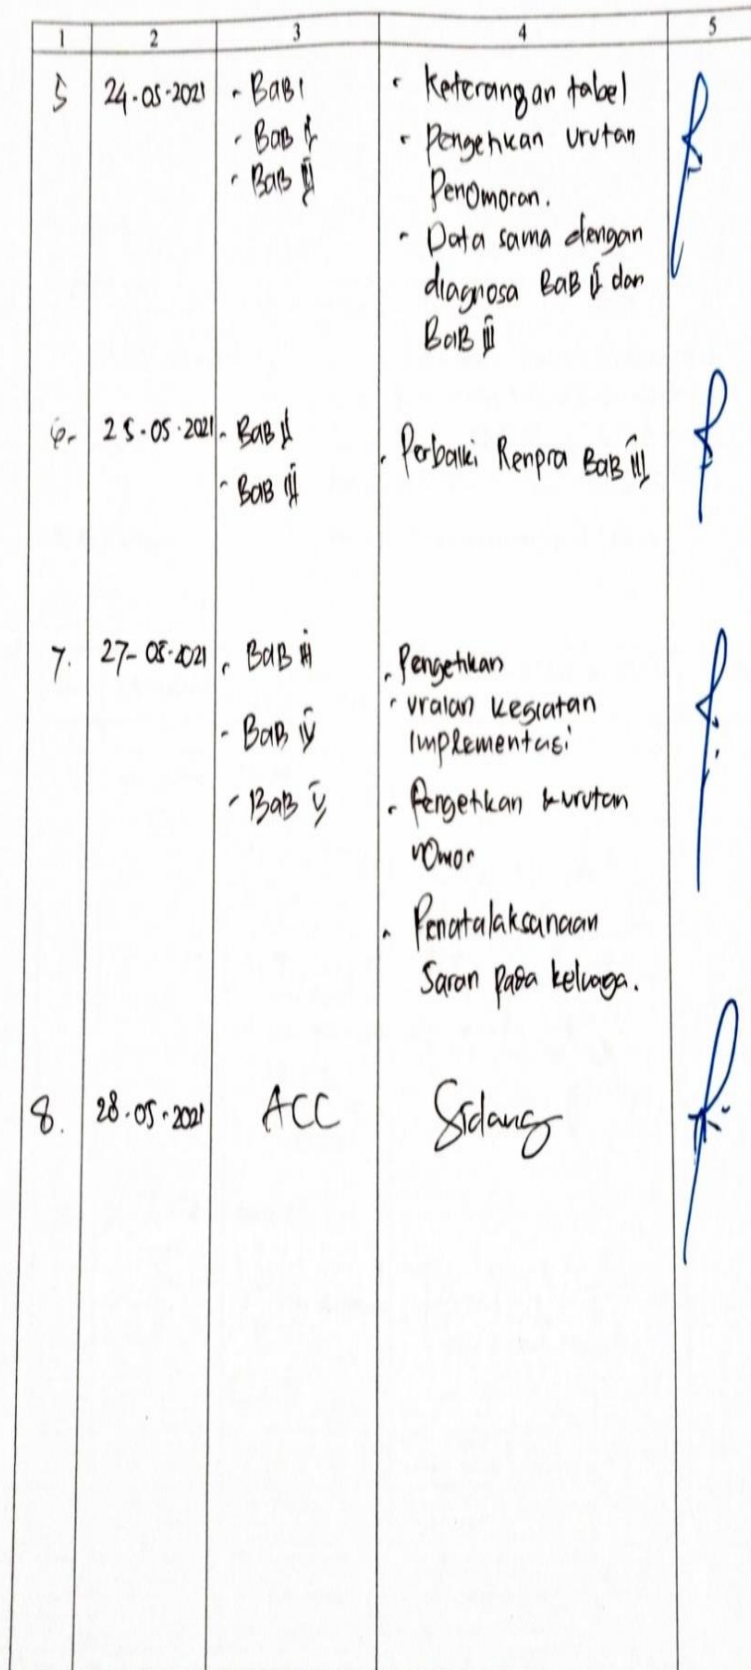 1 2 3 4 5
5 24-05-2021 - BAB I - Keterangan tabel
- BAB II - Pengetikan urutan
- BAB III Penomoran.
- Data sama dengan
diagnosa BAB II dan
BAB III
6. 25-05-2021 - BAB II - Perbaiki Renpra BAB III
- BAB III
7. 27-05-2021 - BAB III - Pengetikan
- uraian kegiatan
- BAB IV Implementasi
- BAB V - Pengetikan & urutan
nomor
- Penatalaksanaan
Saran pada keluaga.
8. 28-05-2021 ACC Sidang